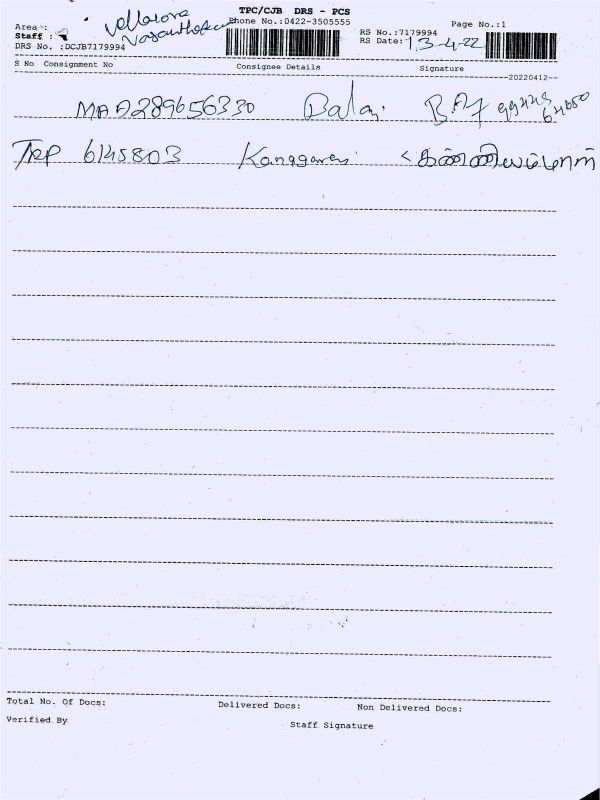 TPC/CJB DRS - PCS
Area :
Phone No.:0422-3505555
Page No.:1
Staff :
RS No.:7179994
DRS No. :DCJB7179994
RS Date: 13-4-22
S No Consignment No Consignee Details Signature
20220412
MAA289656330 Balaji
TRP 6145803
Total No. Of Docs: Delivered Docs: Non Delivered Docs:
Verified By
Staff Signature